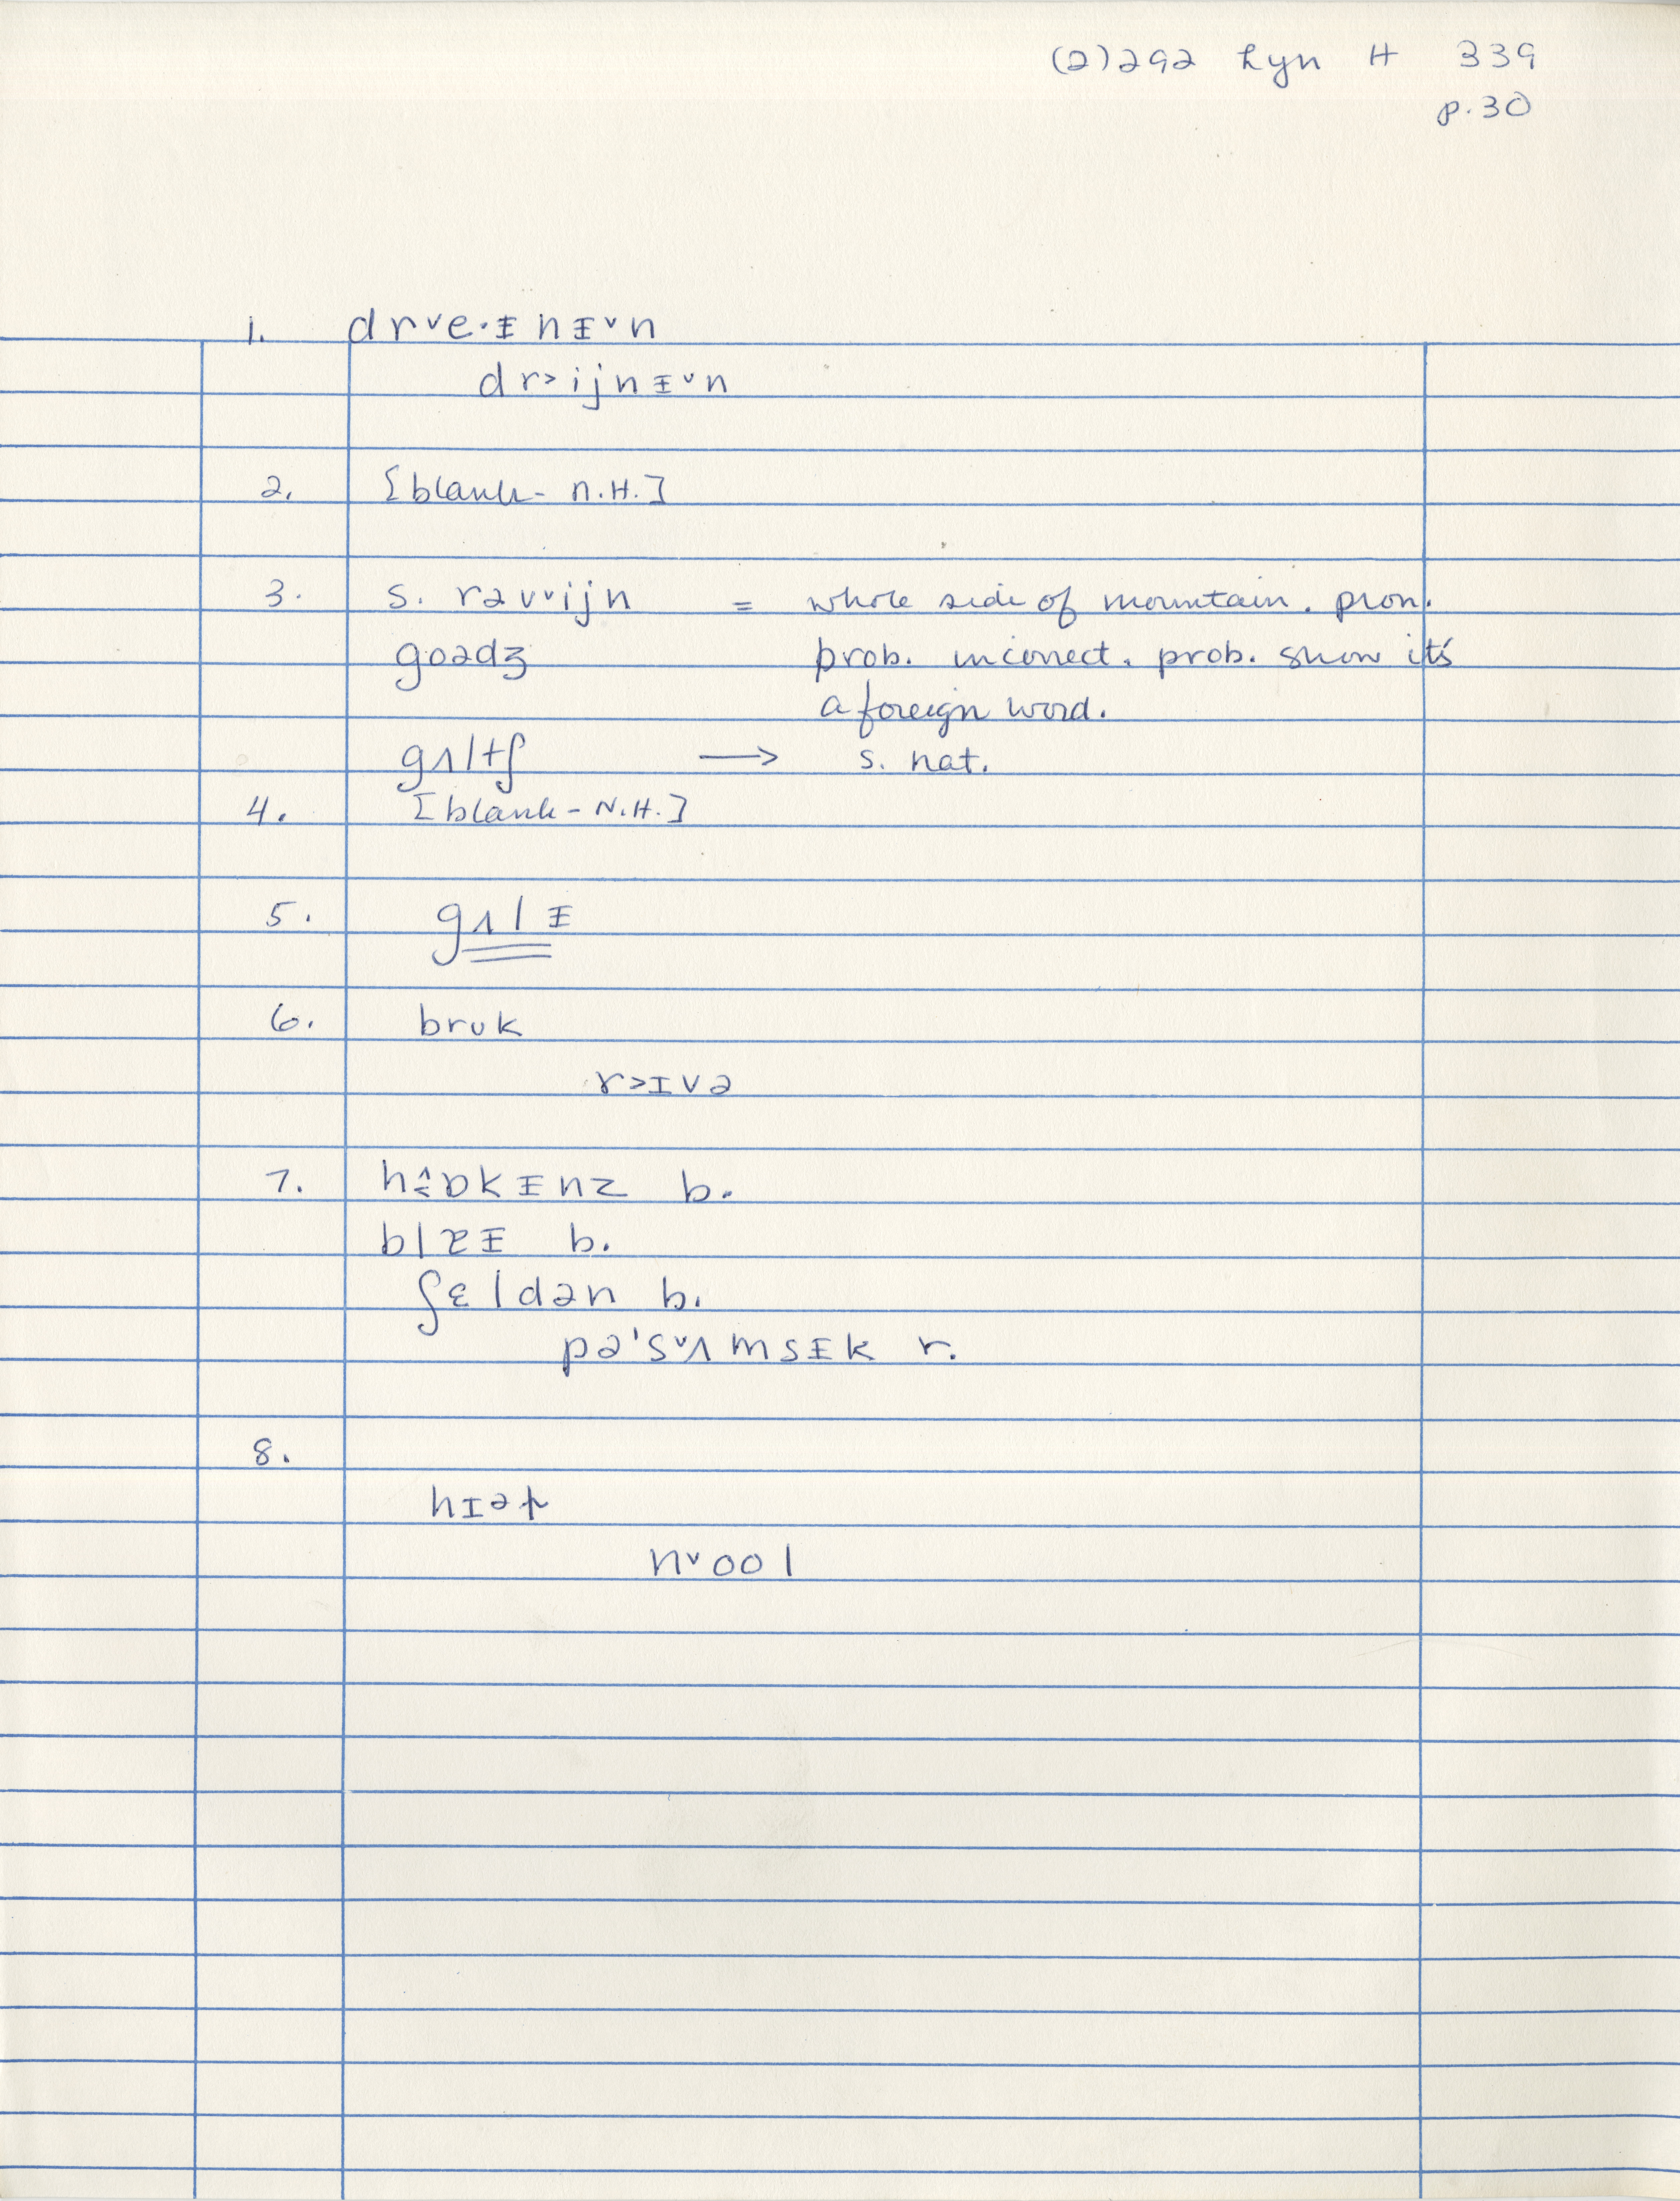 (2)292 Lyn H 339
p.30
1. drᵛe·ᵻnᵻᵛn
dr˃ijnᵻᵛn
2. [blank - N.H.]
3. s. rəvᵛijn = whole side of mountain. pron.
goədʒ prob. incorrect. prob. show it's
a foreign word.
gʌltʃ → s. nat.
4. [blank - N.H.]
5. gʌlᵻ
6. brʊk
r˃ɪvə
7. ɒkᵻnz b.
b. 
ʃɛldən b.
pə'sᵛʌmsᵻk r.
8.
hɪət
nᵛool